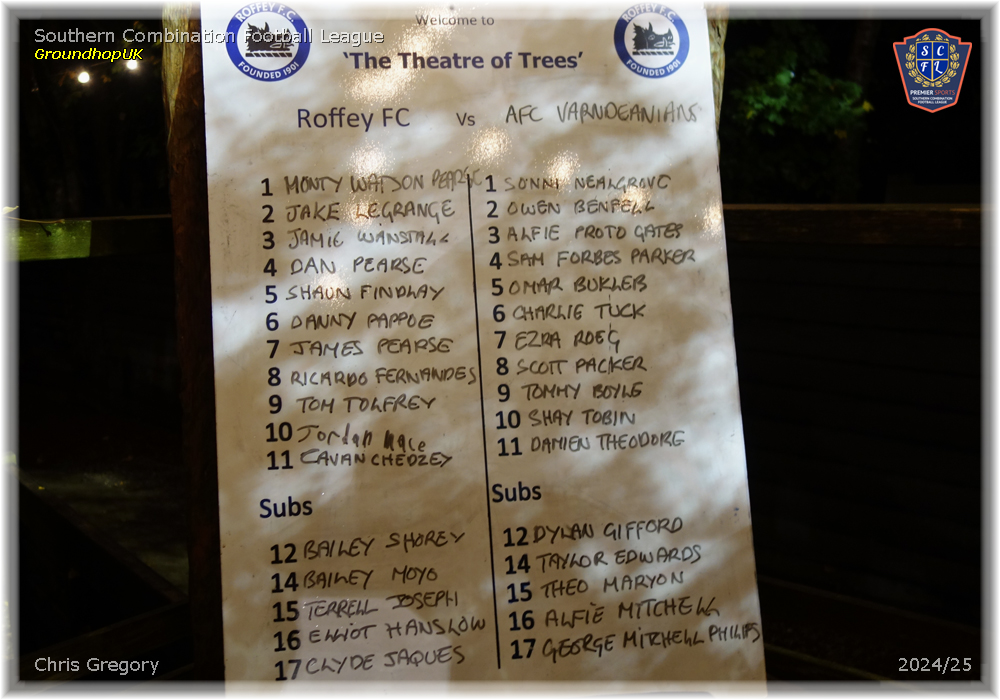 Southern Combination Football League
GroundhopUK
ROFFEY F.C.
FOUNDED 1901
Welcome to
'The Theatre of Trees'
ROFFEY F.C.
FOUNDED 1901
SCFL
PREMIER SPORTS
SOUTHERN COMBINATION
FOOTBALL LEAGUE
Roffey FC Vs AFC VARNDEANIANS
1 MONTY WATSON
2 JAKE LEGRANGE
3 JAMIE WANSTALL
4 DAN PEARSE
5 SHAUN FINDLAY
6 DANNY PAPPOE
7 JAMES PEARSE
8 RICARDO FERNANDES
9 TOM TOLFREY
10 Jordan Mace
11 CAVAN CHEDZEY
Subs
12 BAILEY SHOREY
14 BAILEY MOYO
15 TERRELL JOSEPH
16 ELLIOT HANSLOW
17 CLYDE JAQUES
1 SONNY NEALGROVE
2 OWEN BENFELL
3 ALFIE PROTO GATES
4 SAM FORBES PARKER
5 OMAR BUKLEB
6 CHARLIE TUCK
7 EZRA
8 SCOTT PACKER
9 TOMMY BOYLE
10 SHAY TOBIN
11 DAMIEN THEODORE
Subs
12 DYLAN GIFFORD
14 TAYLOR EDWARDS
15 THEO MARYON
16 ALFIE MITCHELL
17 GEORGE MITCHELL PHILIPS
Chris Gregory
2024/25